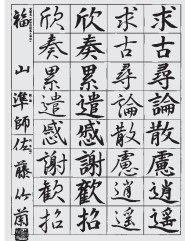 求古尋論散慮逍遥
求古尋論散慮逍遥
欣奏累遣慼謝歡招
欣奏累遣慼謝歡招
福山 準師 佐藤竹蘭